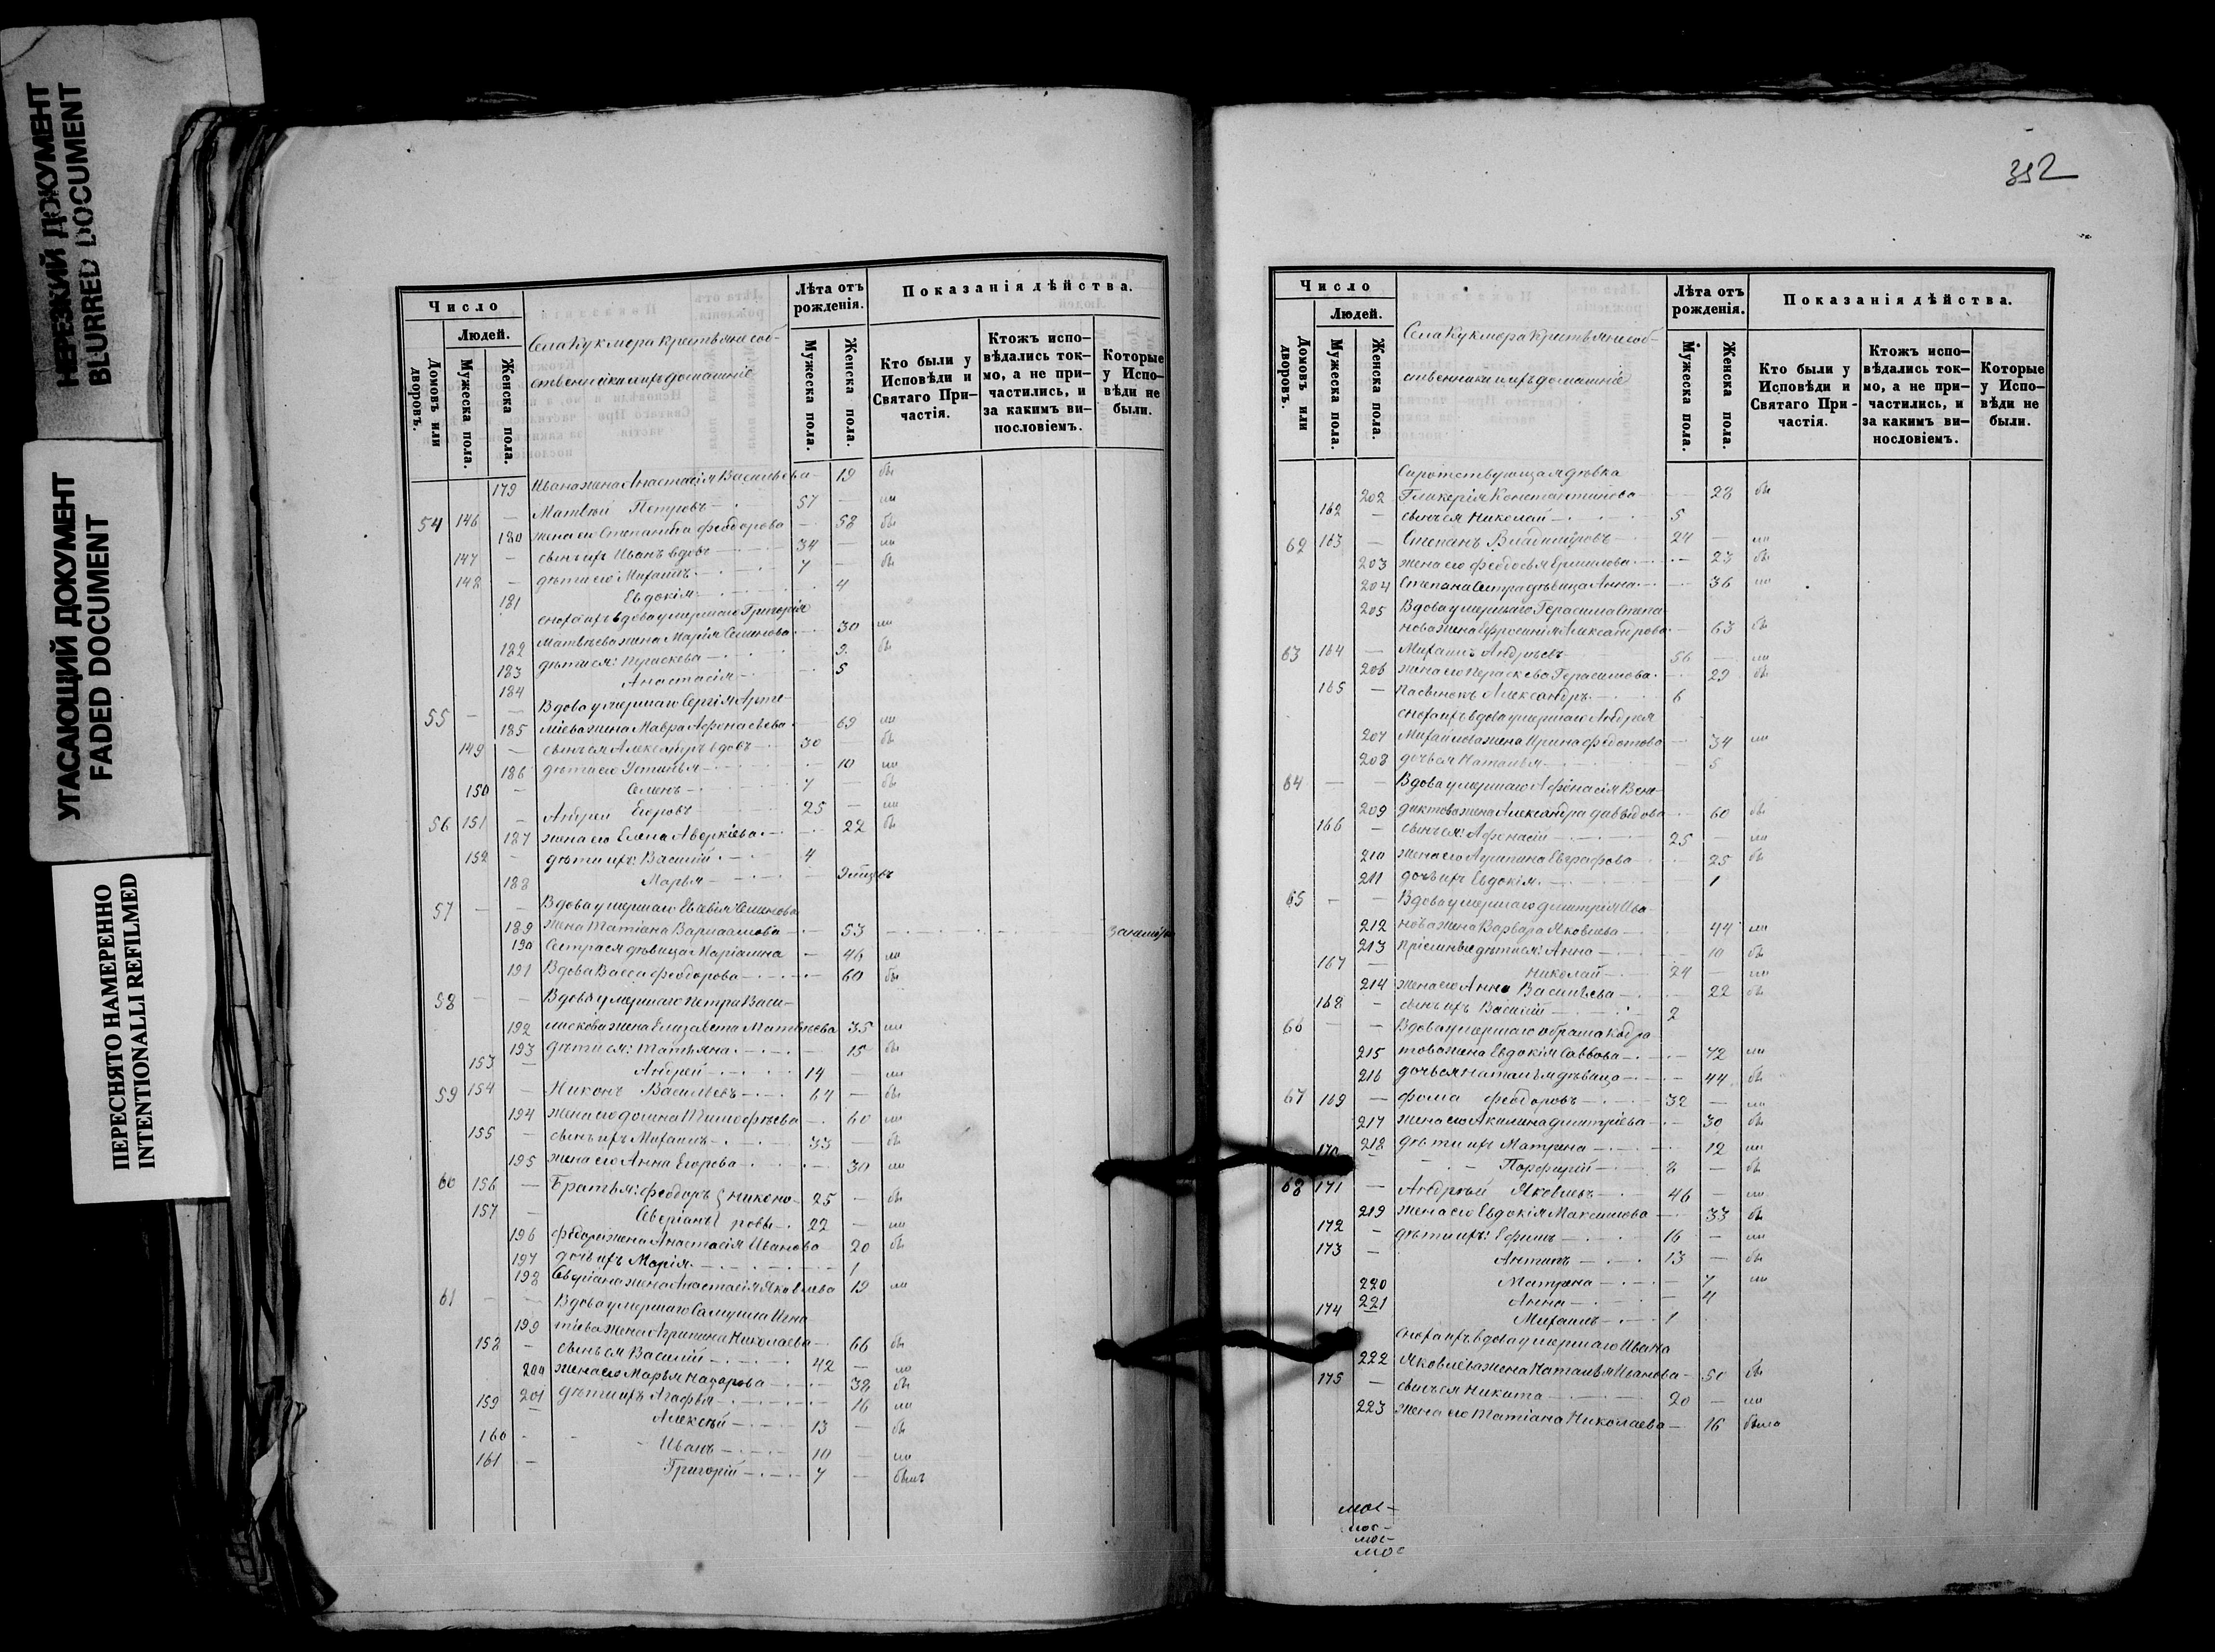 НЕРЕЗКИЙ ДОКУМЕНТ
BLURRED DOCUMENT
УГАСАЮЩИЙ ДОКУМЕНТ
FADED DOCUMENT
ПЕРЕСНЯТО НАМЕРЕННО
INTENTIONALLI REFILMED
Число
Людей.
Домовъ или дворовъ.
Мужеска пола.
Женска пола.
Села Кукмора крестьяне соб-
ственники и ихъ домашніе
Лѣта отъ рожденія.
Мужеска пола.
Женска пола.
Показанія дѣйства.
Кто были у Исповѣди и Святаго При-частія.
Ктожъ испо-вѣдались ток-мо, а не при-частились, и за какимъ ви-нословіемъ.
Которые у Испо-вѣди не были.
179 Ивана жена Анастасія Васильева 19 бы
54 146 — Матвѣй Петровъ 57 — ли
180 жена его Степанида Феодорова — 58 бы
147 — сынъ ихъ Иванъ вдовъ 34 — ли
148 — дѣти его: Михаилъ 7 — бы
181 Евдокія 4
сноха ихъ вдова умершаго Григорія
182 Матвѣева жена Марія Семенова 30 ли
183 дѣти ея: Параскева 9 бы
184 Анастасія 5
55 — — Вдова умершаго Сергія Арте-
185 міева жена Мавра Афонасьева 69 ли
149 — сынъ ея Александръ вдовъ 30 — бы
186 дѣти его Устинья 10 ли
150 — Семенъ 7 — бы
56 151 — Андрей Егоровъ 25 — ли
187 жена его Елена Аверкіева 22 бы
152 — дѣти ихъ: Василій 4
188 Марья — 9 мѣцовъ
57 — — Вдова умершаго Евсевія Семенова
189 жена Татіана Варлаамова 53
190 Сестра ея дѣвица Маріамна — 46 ли
191 Вдова Васса Феодорова 60 бы
58 — — Вдова умершаго Петра Васи-
192 лискова жена Елизавета Матвѣева 35 ли
193 дѣти ея: Татьяна — 15 бы
153 — Андрей 14 — ли
59 154 — Никонъ Васильевъ 64 — бы
194 жена его Домна Тимофѣева 60 ли
155 — сынъ ихъ Михаилъ 33 — бы
195 жена его Анна Егорова 30 ли
60 156 — Братья: Феодоръ } Никоно- 25 — бы
157 — Северіанъ } ровы 22 — ли
196 Федора жена Анастасія Иванова 20 бы
197 дочь ихъ Марія 1
198 Северіана жена Анастасія Яковлева 19 ли
61 — — Вдова умершаго Самуила Игна-
199 тіева жена Агрипина Николаева 66 бы
158 — сынъ ея Василій 42 — ли
200 жена его Марья Назарова 38 бы
201 дѣти ихъ Агафья 16 ли
159 — Алексѣй 13 — бы
160 - Иванъ 10 — ли
161 — Григорій 7 — былъ
352
Число
Людей.
Домовъ или дворовъ.
Мужеска пола.
Женска пола.
Села Кукмора крестьяне соб-
ственники и ихъ домашніе
Лѣта отъ рожденія.
Мужеска пола.
Женска пола.
Показанія дѣйства.
Кто были у Исповѣди и Святаго При-частія.
Ктожъ испо-вѣдались ток-мо, а не при-частились, и за какимъ ви-нословіемъ.
Которые у Испо-вѣди не были.
Сиротствующая дѣвка
202 Гликерія Константинова 28 бы
162 — сынъ ея Николай 5
62 163 — Степанъ Владиміровъ 24 — ли
203 жена его Феодосья Ермилова 23 бы
204 Степана сестра дѣвица Анна 36 ли
205 Вдова умершаго Герасима Степа-
нова жена Ефросинія Александрова 63 бы
63 164 — Михаилъ Андреевъ 56 — ли
206 жена его Параскева Герасимова 29 бы
165 — Пасынокъ Александръ 6
сноха ихъ вдова умершаго Андрея
207 Михайлова жена Ирина Федотова — 34 ли
208 дочь ея Наталья — 5
64 — — Вдова умершаго Афонасія Вене-
209 диктова жена Александра Давыдова 60 бы
166 — сынъ ея: Афонасій 25 — ли
210 жена его Агрипина Евграфова 25 бы
211 дочь ихъ Евдокія 1
65 — — Вдова умершаго Димитрія Ива-
212 нова жена Варвара Яковлева 44 ли
213 пріемные дѣти ея: Анна 10 бы
167 — Николай 24 — ли
214 жена его Анна Васильева 22 бы
168 — сынъ ихъ Василій 2
66 — — Вдова умершаго Абрама Кодра-
215 това жена Евдокія Саввова 72 ли
216 дочь ея Наталья дѣвица 44 бы
67 169 — Фома Феодоровъ 32 — ли
217 жена его Акилина Димитріева 30 бы
218 дѣти ихъ Матрена 12 ли
170 — Порфирій 8 — бы
68 171 — Андрей Яковлевъ 46 — ли
219 жена его Евдокія Максимова 33 бы
172 — дѣти ихъ: Ефимъ 16 — ли
173 — Антипъ 13 — бы
220 Матрена — 7 ли
221 Анна — 4
174 Михаилъ 1
сноха ихъ вдова умершаго Ивана
222 Яковлева жена Наталья Иванова 50 бы
175 — сынъ ея Никита 20 — ли
223 жена его Татіана Николаева 16 была